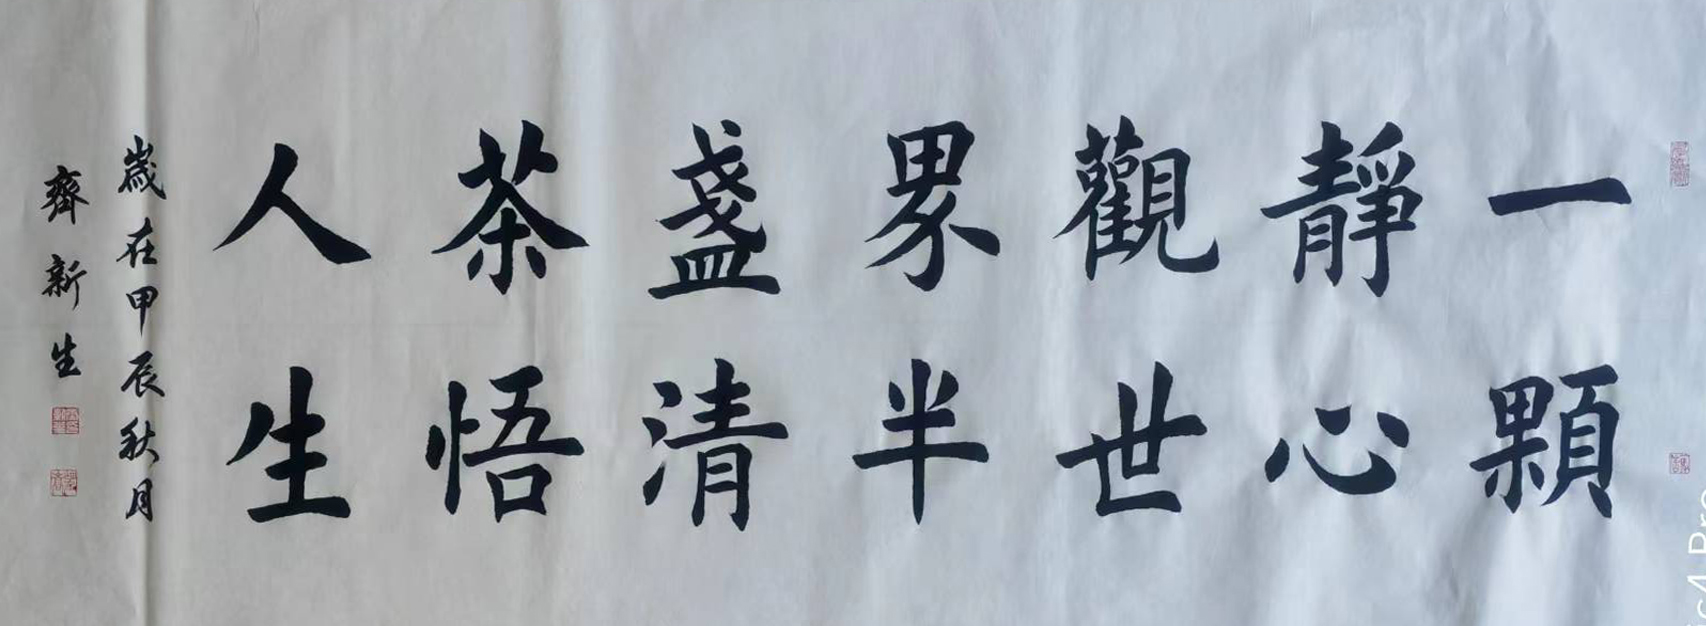 一顆
靜心
觀世
界半
盞清
茶悟
人生
歲在甲辰秋月
齊新生